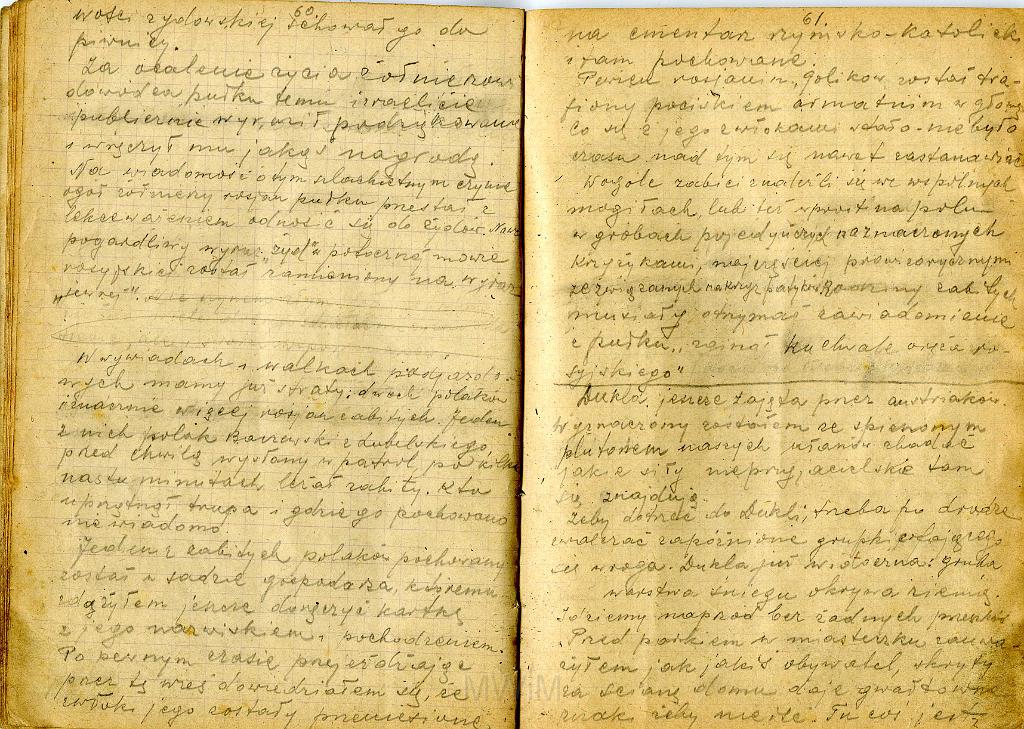 60
wości żydowskiej schował go do
piwnicy.
Za ocalenie życia żołnierzowi
dowódca pułku temu izraelicie
publicznie wyraził podziękowanie
i wręczył mu jakąś nagrodę.
Na wiadomość o tym szlachetnym czynie
ogół żołnierzy rosjan pułku przestał z
lekceważeniem odnosić się do żydów. Nawet
pogardliwy wyraz „żyd" w potocznej mowie
rosyjskiej został zamieniony na wyraz
„jewrej".
W wywiadach i walkach podjazdo-
wych mamy już straty: dwóch polaków
i znacznie więcej rosjan zabitych. Jeden
z nich polak z lubelskiego,
przed chwilą wysłany w patrol, po kilku
nastu minutach leżał zabity. Kto
uprzątnął trupa i gdzie go pochowano
nie wiadomo.
Jeden z zabitych polaków pochowany
został w sadzie gospodarza, któremu
zdążyłem jeszcze doręczyć kartkę
z jego nazwiskiem i pochodzeniem.
Po pewnym czasie przejeżdżając
przez tę wieś dowiedziałem się, że
zwłoki jego zostały przeniesione
61.
na cmentarz rzymsko-katolicki
i tam pochowane.
Pewien rosjanin, Golikow został tra-
fiony pociskiem armatnim w głowę.
Co się z jego zwłokami stało - nie było
czasu nad tym się nawet zastanawiać
Wogóle zabici znaleźli się we wspólnych
mogiłach, lub też wprost na polu
w grobach pojedyńczych naznaczonych
krzyżykami, najczęściej prowizorycznymi
ze związanych na krzyż patyków. Rodziny zabitych
musiały otrzymać zawiadomienie
z pułku „zginął ku chwale oręża ro-
syjskiego"
Dukla jeszcze zajęta przez austriaków.
Wyznaczony zostałem ze spieszonym
plutonem naszych ułanów zbadać
jakie siły nieprzyjacielskie tam
się znajdują.
Żeby dotrzeć do Dukli, trzeba po drodze
zwalczać zapóźnione grupki cofającego
się wroga. Dukla już widoczna: gruba
warstwa śniegu okrywa ziemię.
Idziemy naprzód bez żadnych przeszkód
Przed parkiem w miasteczku zauwa-
żyłem jak jakiś obywatel, ukryty
za ścianą domu daje gwałtowne
znaki żeby nie iść. Tu coś jest,
MWiM